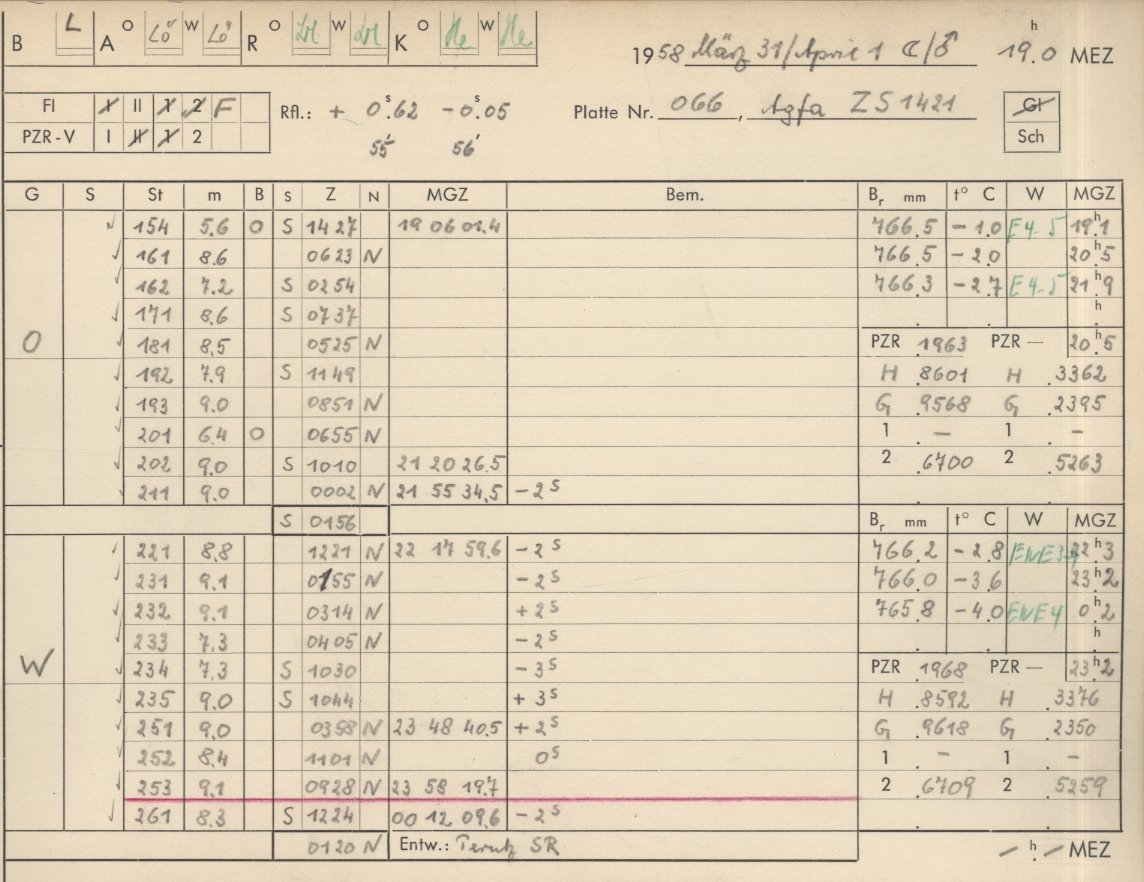 B L A O Lö W Lö R O W K O He W He
1958 März 31/April 1 ☾/♂ 19.0 h MEZ
FI I II 1 2 F
PZR-V I II 1 2
Rfl.: + 0.62 s -0.05 s
55' 56'
Platte Nr. 066, Agfa ZS 1421
Gl
Sch
G S St m B S Z N MGZ Bem. Br mm t° C W MGZ
154 5.6 O S 1427 19 06 01.4 766.5 -1.0 E 4-5 19h.1
161 8.6 0623 N 766.5 -2.0 20h.5
162 7.2 S 0254 766.3 -2.7 E 4-5 21h.9
171 8.6 S 0737 h
O 181 8.5 0525 N PZR .1963 PZR — 20h.5
192 7.9 S 1149 H .8601 H .3362
193 9.0 0851 N G .9568 G .2395
201 6.4 O 0655 N 1 . – 1 . –
202 9.0 S 1010 21 20 26.5 2 .6700 2 .5263
211 9.0 0002 N 21 55 34.5 -2 s
S 0156 Br mm t° C W MGZ
221 8.8 1221 N 22 17 59.6 -2 s 766.2 -2.8 22h.3
231 9.1 0155 N -2 s 766.0 -3.6 23h.2
232 9.1 0314 N +2 s 765.8 -4.0 ENE 4 0h.2
233 7.3 0405 N -2 s h
W 234 7.3 S 1030 -3 s PZR .1968 PZR — 23h.2
235 9.0 S 1044 +3 s H .8592 H .3376
251 9.0 0358 N 23 48 40.5 +2 s G .9618 G .2350
252 8.4 1101 N 0 s 1 . – 1 . –
253 9.1 0928 N 23 58 19.7 2 .6709 2 .5259
261 8.3 S 1224 00 12 09.6 -2 s
0120 N Entw.: Perutz SR – h. – MEZ